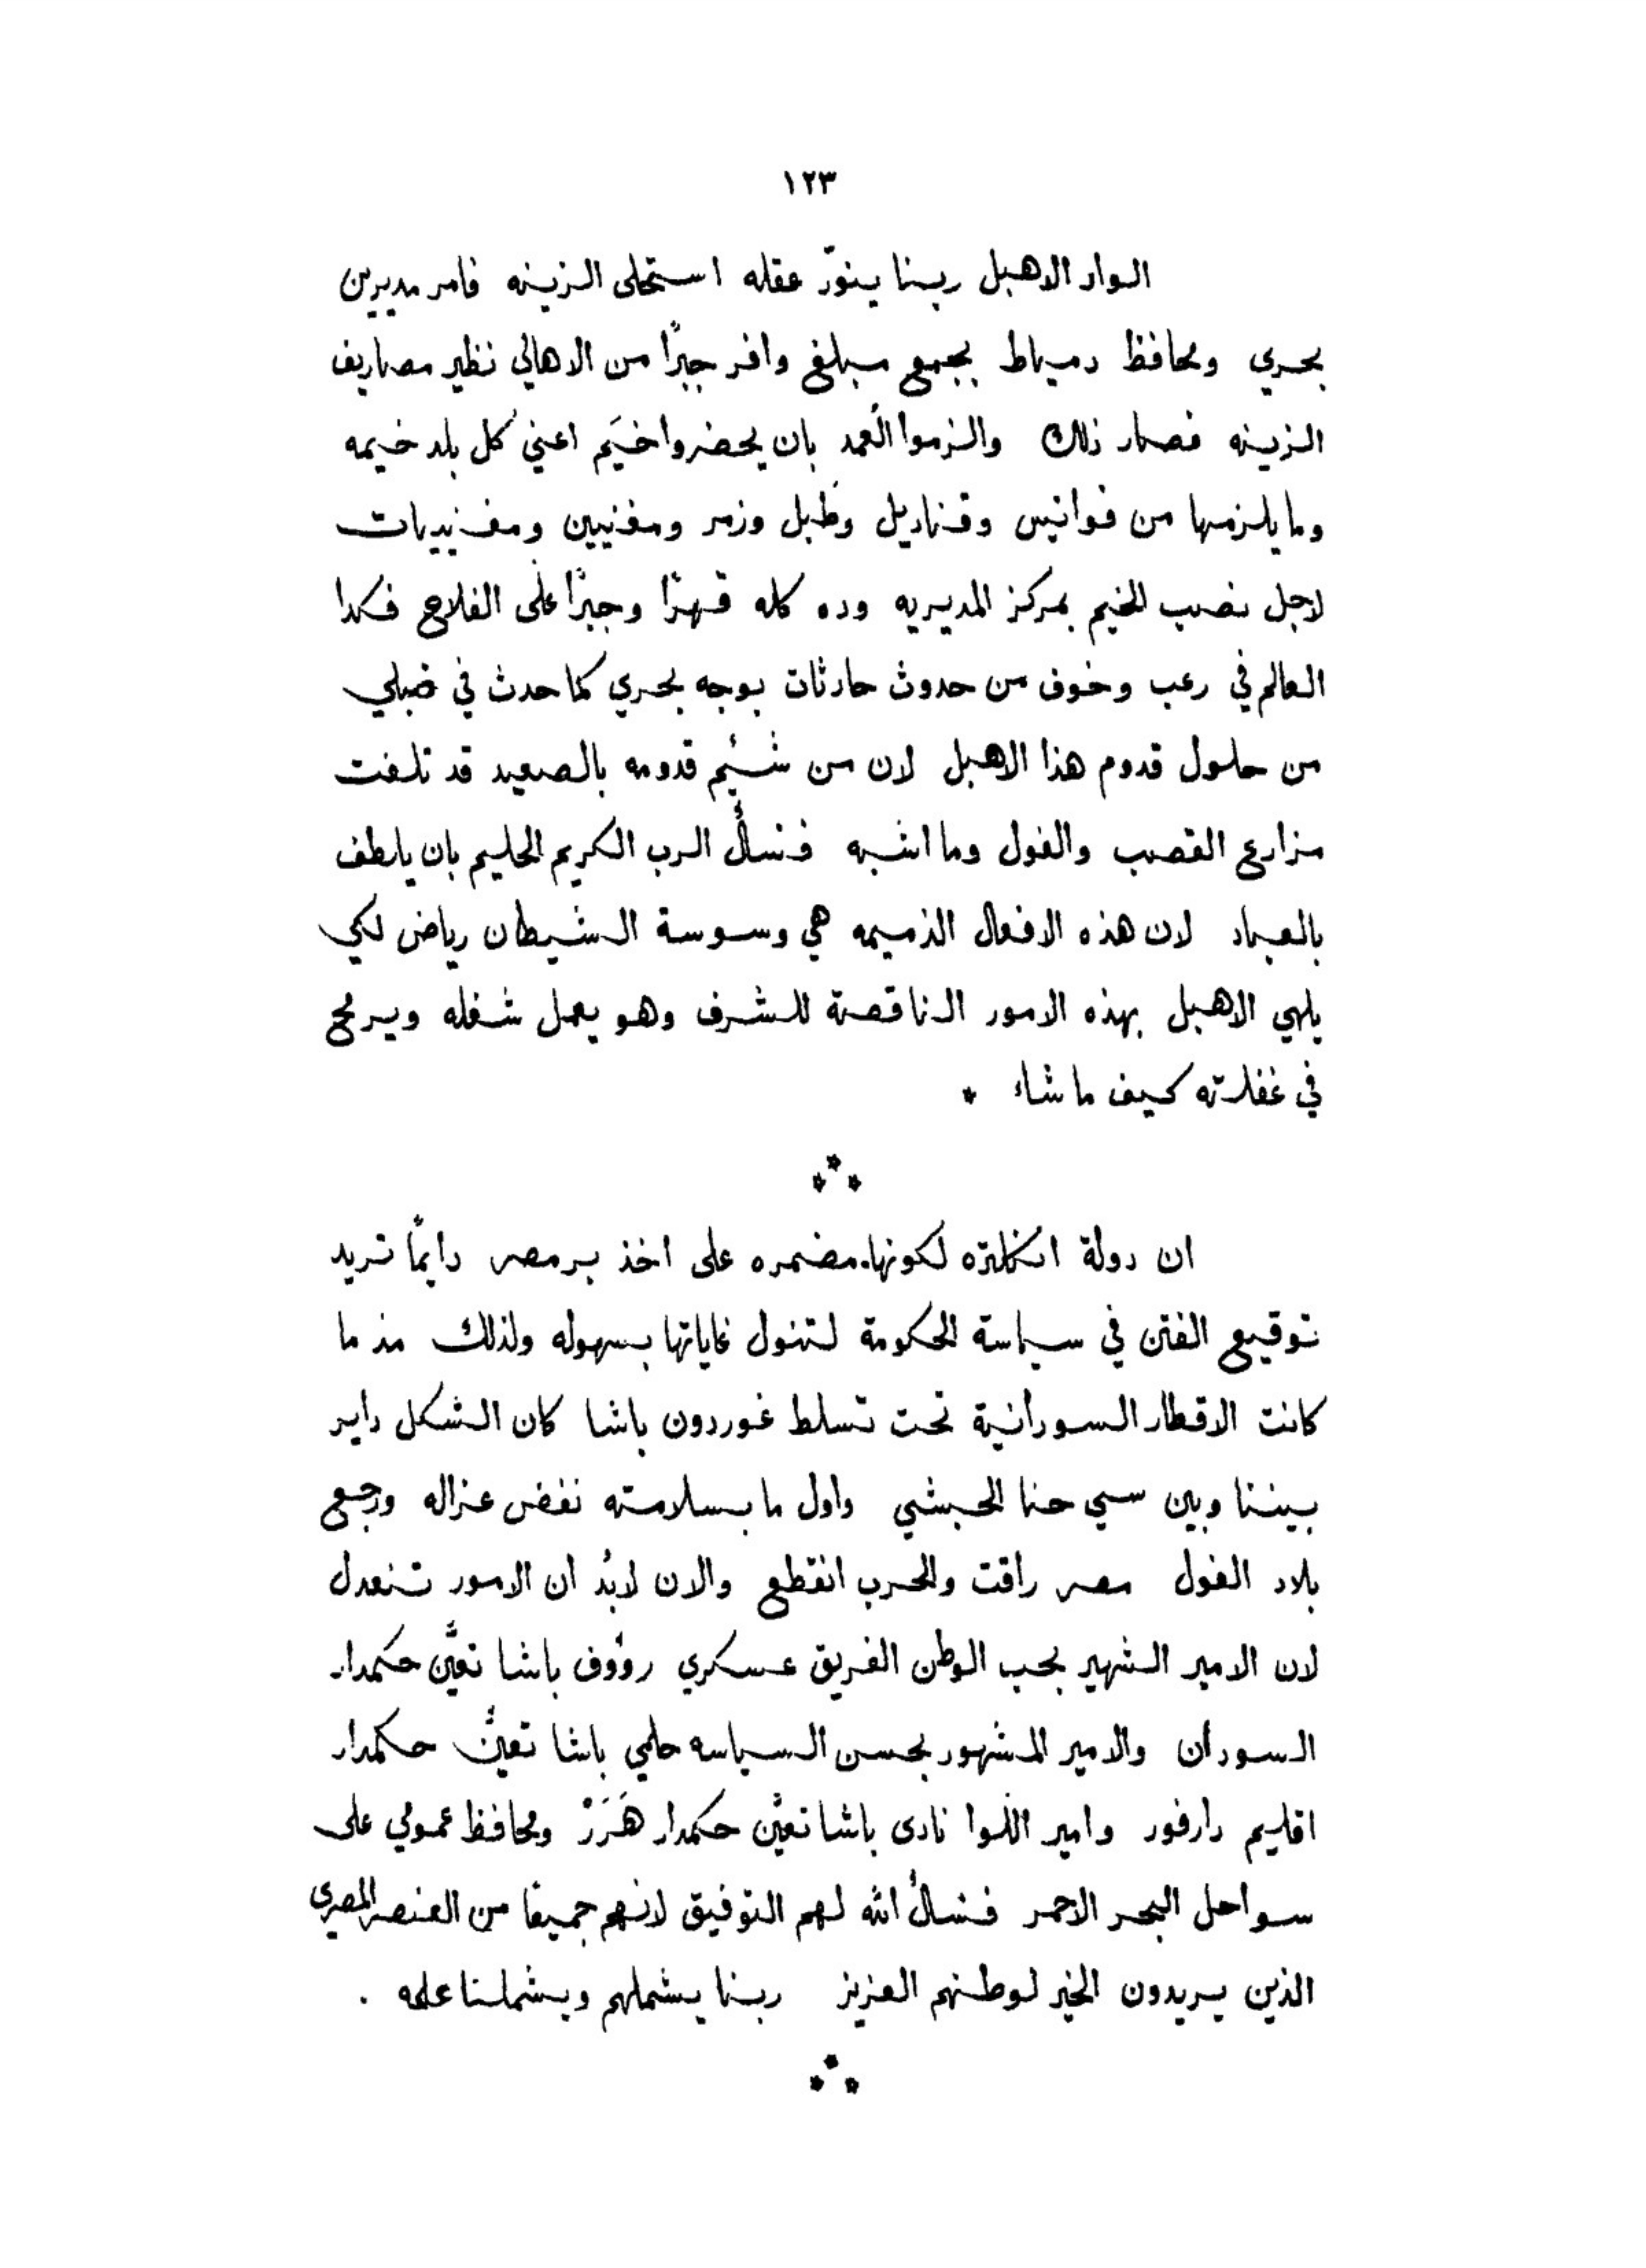 ١٢٣
الواد الاهبل ربنا ينوّر عقله استحلى الزينه فامر مديرين
بحري ومحافظ دمياط بجمع مبلغ وافر جبرًا من الاهالي نظير مصاريف
الزينه فصار ذلك والزموا العُمد بان يحضروا خيَم اعني كل بلد خيمه
وما يلزمها من فوانيس وقناديل وطبل وزمر ومغنيين ومغنييات
لاجل نصب الخيم بمركز المديريه وده كله قهرًا وجبرًا على الفلاح فكدا
العالم في رعب وخوف من حدوث حادثات بوجه بحري كما حدث في قبلي
من حلول قدوم هذا الاهبل لان من شئيم قدومه بالصعيد قد تلفت
مزارع القصب والفول وما اشبه فنسأل الرب الكريم الحليم بان يلطف
بالعباد لان هذه الافعال الذميمه هي وسوسة الشيطان رياض لكي
يلهي الاهبل بهذه الامور الناقصة للشرف وهو يعمل شغله ويرمح
في غفلاته كيف ما شاء *
***
ان دولة انكلتره لكونها مضمره على اخذ بر مصر دايمًا تريد
توقيع الفتن في سياسة الحكومة لتنول غاياتها بسهوله ولذلك مذ ما
كانت الاقطار السودانية تحت تسلط غوردون باشا كان الشكل داير
بيننا وبين سي حنا الحبشي واول ما بسلامته نفض عزاله ورجع
بلاد الفول مصر راقت والحرب انقطع والان لابُد ان الامور تنعدل
لان الامير الشهير بحب الوطن الفريق عسكري رؤوف باشا تعيَّن حكمدار
السودان والامير المشهور بحسن السياسه حلمي باشا تعيَّن حكمدار
اقليم دارفور وامير اللوا نادى باشا تعيَّن حكمدار هَرَرْ ومحافظ عمولي على
سواحل البحر الاحمر فنسأل الله لهم التوفيق لانهم جميعًا من العنصر المصري
الذين يريدون الخير لوطنهم العزيز ربنا يشملهم ويشملنا علمه .
***